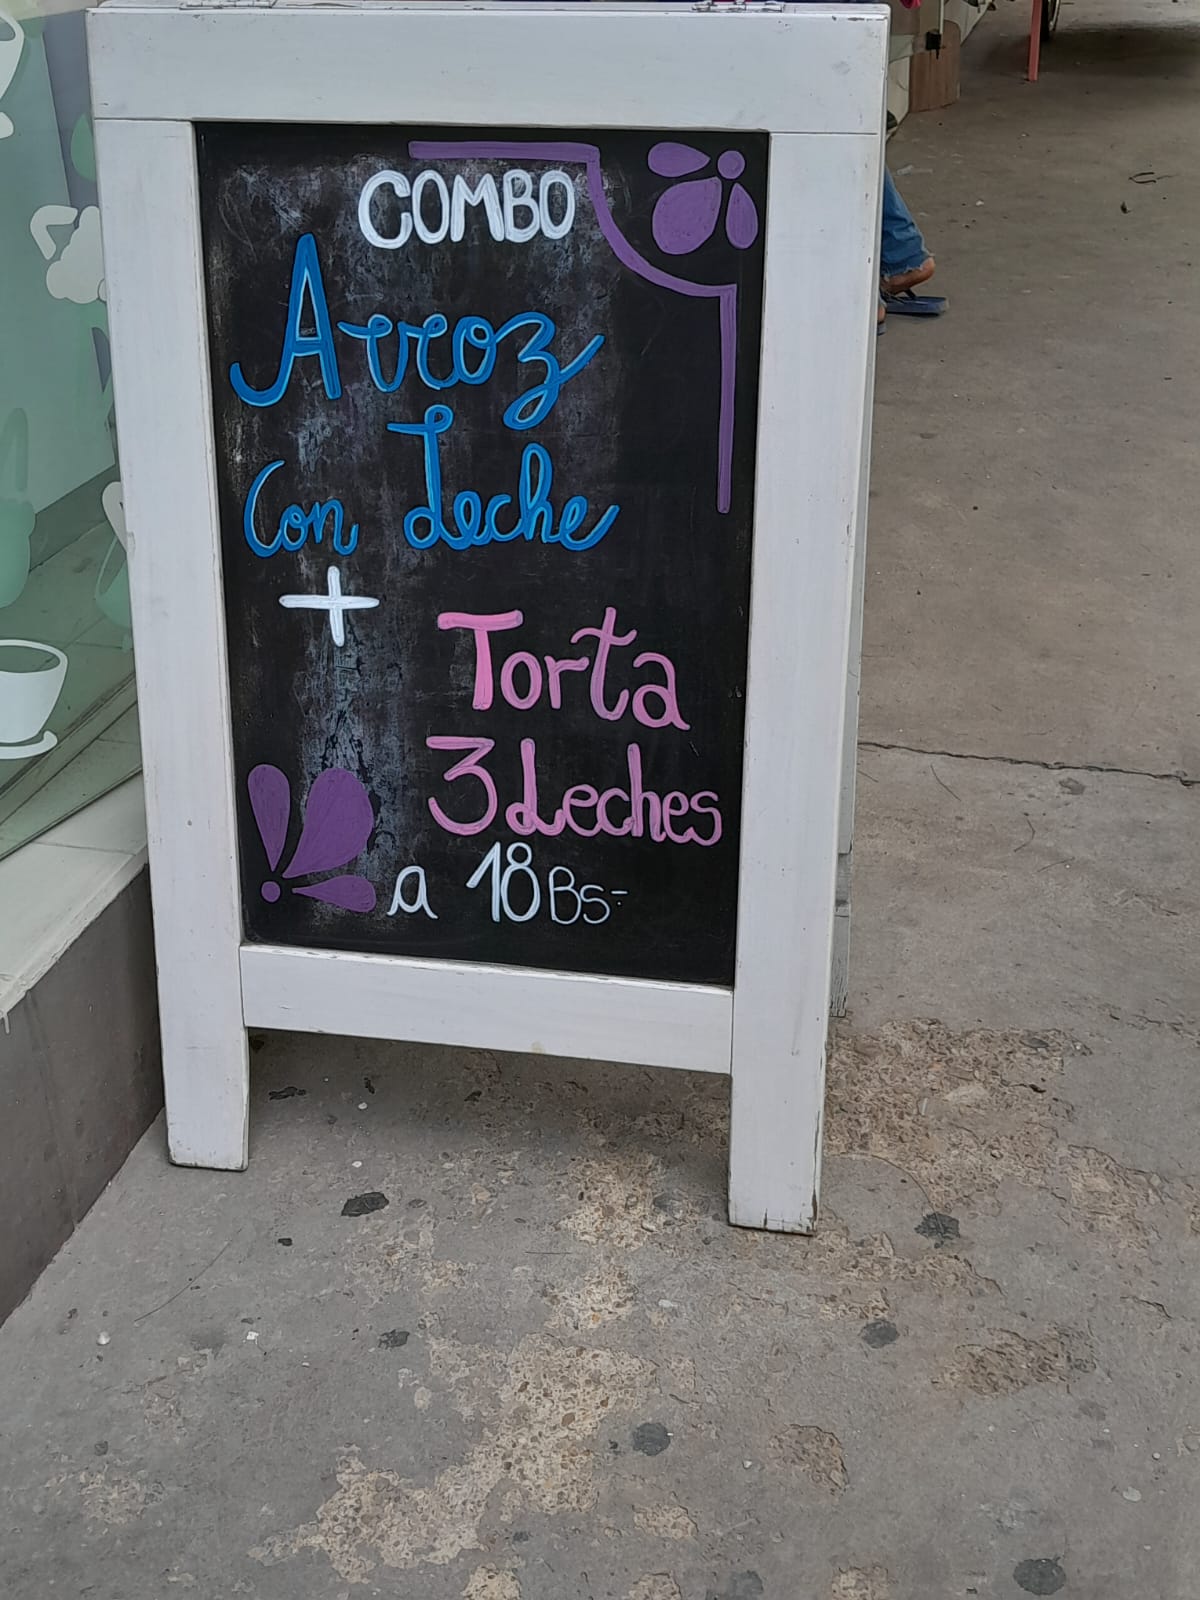 COMBO
Arroz
Con Leche
+
Torta
3 Leches
a 18 Bs-